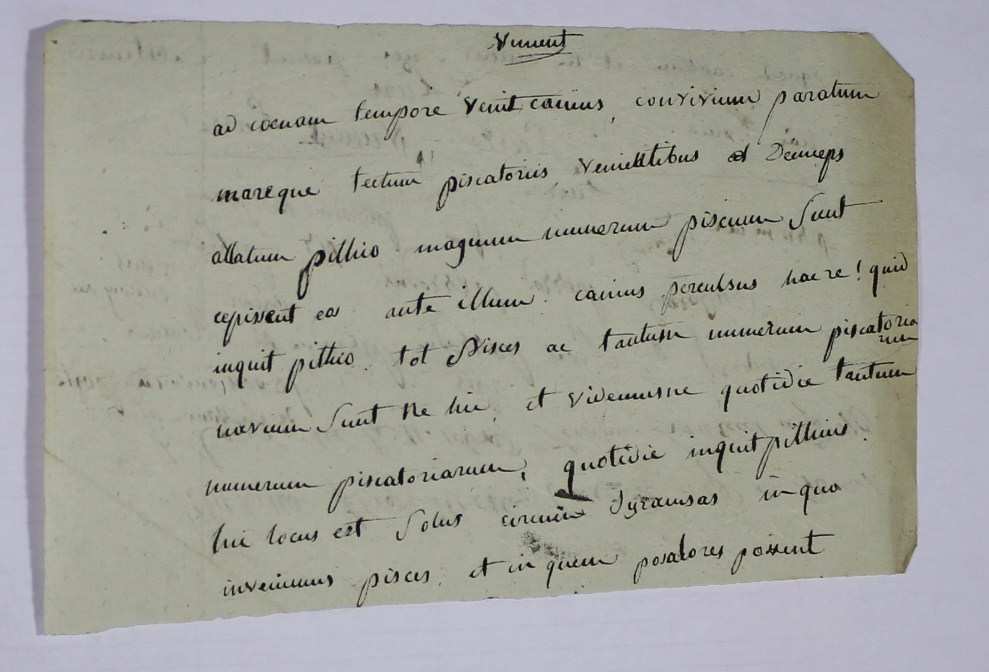 Vincent
ad coenam tempore venit canius, convivium paratum
mareque tectum piscatoriis venientibus et Deinceps
allatum pithio. magnum numerum piscium sunt
cepissent eos ante illum. canius percubsus hac re! quid
inquit pithio. tot pisces ac tantum numerum piscatoria
rum
navium sunt ne hic, et videmusne quotidie tantum
numerum piscatoriarum, quotidie inquit pithius.
hic locus est solus circum Syracusas in quo
invenimus pisces. et in quem possent